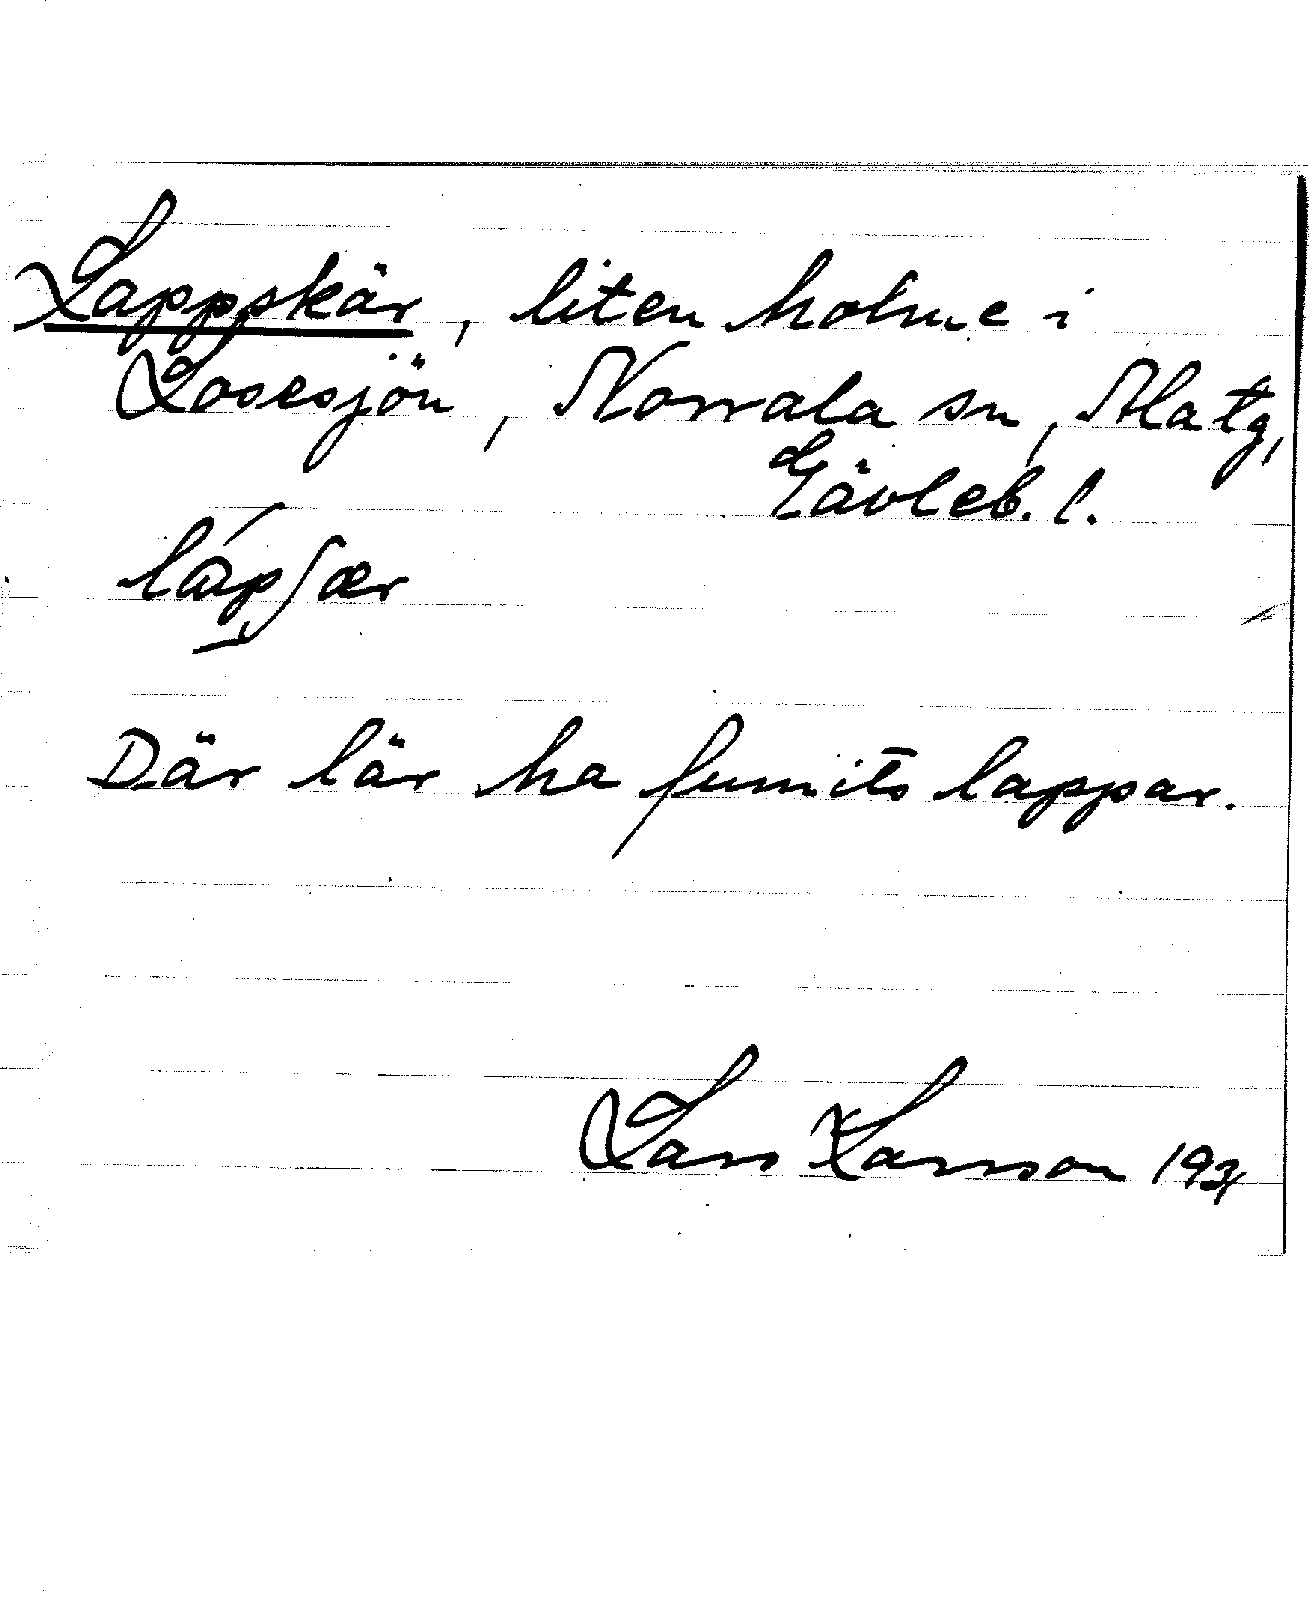 Lappskär, liten holme i
Losesjön, Norrala sn, Ala tg,
Gävleb. l.
Där lär ha funnits lappar.
Lars Larsson